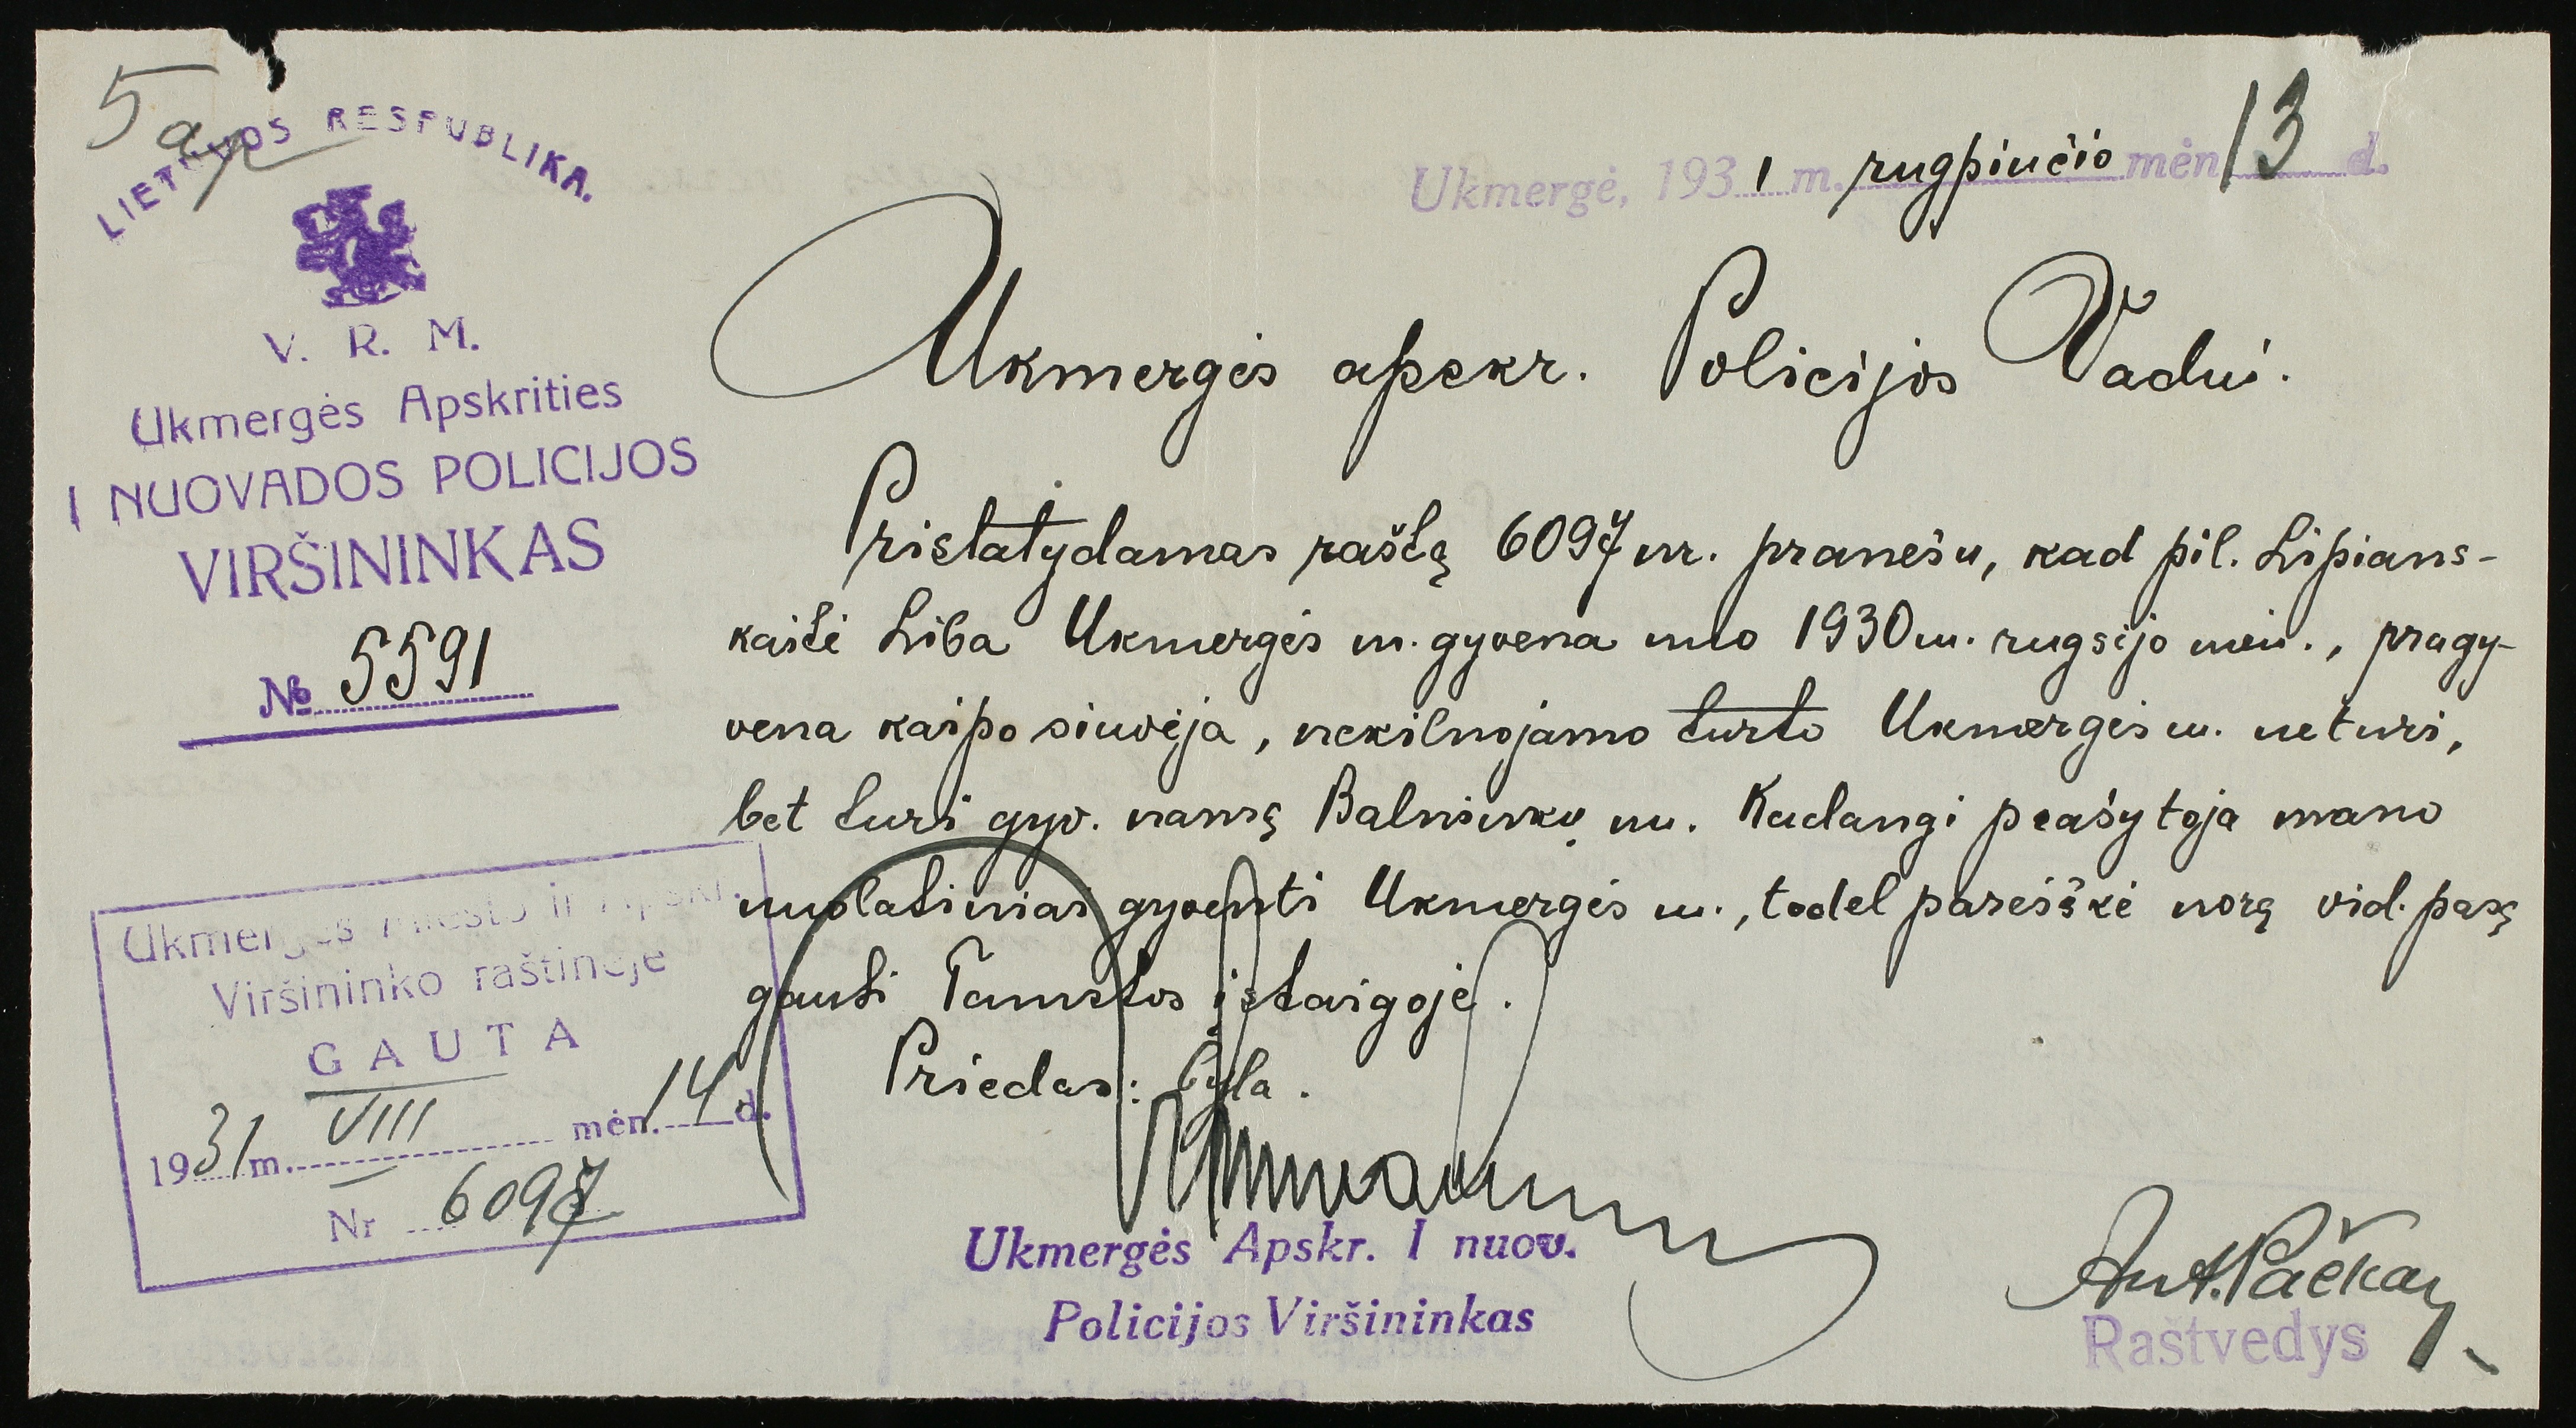 5 ap
LIETUVOS RESPUBLIKA.
V. R. M.
Ukmergės Apskrities
I NUOVADOS POLICIJOS
VIRŠININKAS
№ 5591
Ukmergė, 1931 m. rugpiučio mėn 13 d.
Ukmergės apskr. Policijos Vadui.
Pristatydamas raštą 6097 nr. pranešu, kad pil. Lipians-
kaitė Liba Ukmergės m. gyvena nuo 1930 m. rugsijo mėn., pragy-
vena kaipo siuvėja, nekilnojamo turto Ukmergės m. neturi,
bet turi gyv. namą Balninkų m. Kadangi prašytoja mano
nuolatiniai gyventi Ukmergės m., todel pareiškė norą vid. pasą
gauti Tamstos įstaigoje.
Priedas: byla.
Ukmergės Miesto ir Apskr.
Viršininko raštinėje
GAUTA
1931 m. VIII mėn. 14 d.
Nr 6097
Ukmergės Apskr. I nuov.
Policijos Viršininkas
Ant. Pačkay
Raštvedys